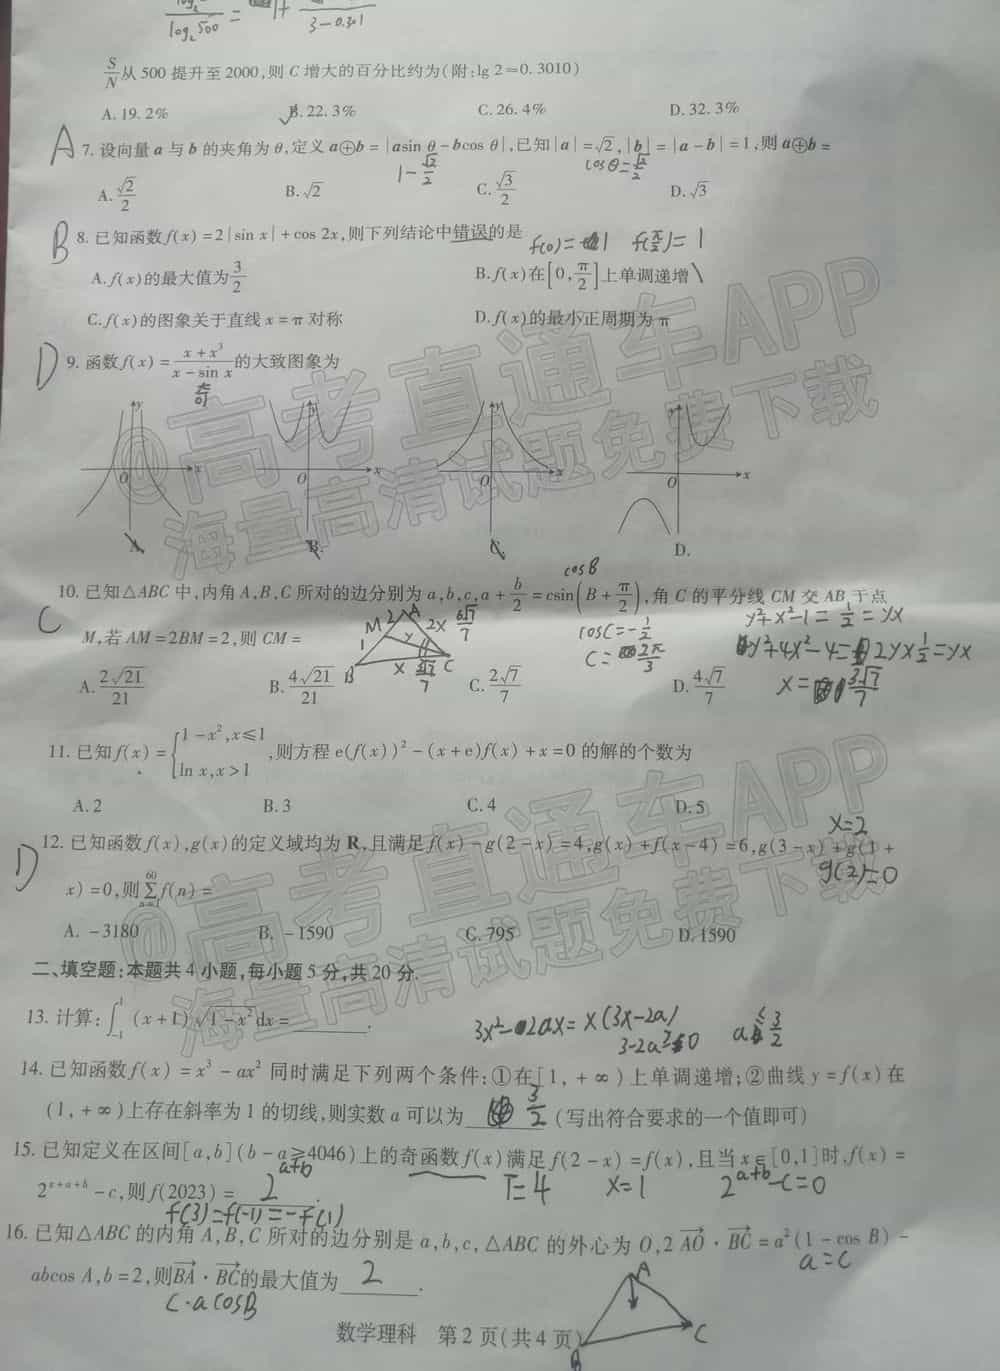 log₂500 = 1 + 3-0.301
S/N从500提升至2000,则C增大的百分比约为(附:lg 2=0.3010)
A. 19.2% B. 22.3% C. 26.4% D. 32.3%
A 7. 设向量a与b的夹角为θ,定义a⊕b=|asin θ-bcos θ|,已知|a|=√2,|b|=|a-b|=1,则a⊕b=
1-√2/2 cosθ=√2/2
A. √2/2 B. √2 C. √3/2 D. √3
B 8. 已知函数f(x)=2|sin x|+cos 2x,则下列结论中错误的是 f(0)=1 f(π/2)=1
A. f(x)的最大值为3/2 B. f(x)在[0,π/2]上单调递增
C. f(x)的图象关于直线x=π对称 D. f(x)的最小正周期为π
D 9. 函数f(x)=(x+x³)/(x-sin x)的大致图象为
奇
y y y y
O x O x O x O x
A. B. C. D.
cosB
10. 已知△ABC中,内角A,B,C所对的边分别为a,b,c,a+b/2=csin(B+π/2),角C的平分线CM交AB于点
C M,若AM=2BM=2,则CM=
A M 2 1 B C x 2x y 6√7/7 3√7/7
cosC=-1/2
C=2π/3
y²+x²-1=1/2=yx
y²+4x²-4=2yx1/2=yx
x=3√7/7
A. 2√21/21 B. 4√21/21 C. 2√7/7 D. 4√7/7
11. 已知f(x)={1-x²,x≤1 ln x,x>1,则方程e(f(x))²-(x+e)f(x)+x=0的解的个数为
A. 2 B. 3 C. 4 D. 5
x=2
D 12. 已知函数f(x),g(x)的定义域均为R,且满足f(x)-g(2-x)=4,g(x)+f(x-4)=6,g(3-x)+g(1+
x)=0,则∑f(n)= 60 n=1 g(2)=0
A. -3180 B. -1590 C. 795 D. 1590
二、填空题:本题共4小题,每小题5分,共20分.
13. 计算:∫₋₁¹(x+1)√(1-x²)dx=________.
3x²-2ax=x(3x-2a)
3-2a≥0 a≤3/2
14. 已知函数f(x)=x³-ax²同时满足下列两个条件:①在[1,+∞)上单调递增;②曲线y=f(x)在
(1,+∞)上存在斜率为1的切线,则实数a可以为 3/2 (写出符合要求的一个值即可)
15. 已知定义在区间[a,b](b-a≥4046)上的奇函数f(x)满足f(2-x)=f(x),且当x∈[0,1]时,f(x)=
a+b
2^(x+a+b)-c,则f(2023)= 2 . T=4 x=1 2^(a+b)-c=0
f(3)=f(-1)=-f(1)
16. 已知△ABC的内角A,B,C所对的边分别是a,b,c,△ABC的外心为O,2AO·BC=a²(1-cos B)-
a=c
abcos A,b=2,则BA·BC的最大值为 2 .
c·acosB
A B C
数学理科 第2页(共4页)
@高考直通车APP
海量高清试题免费下载
@高考直通车APP
海量高清试题免费下载